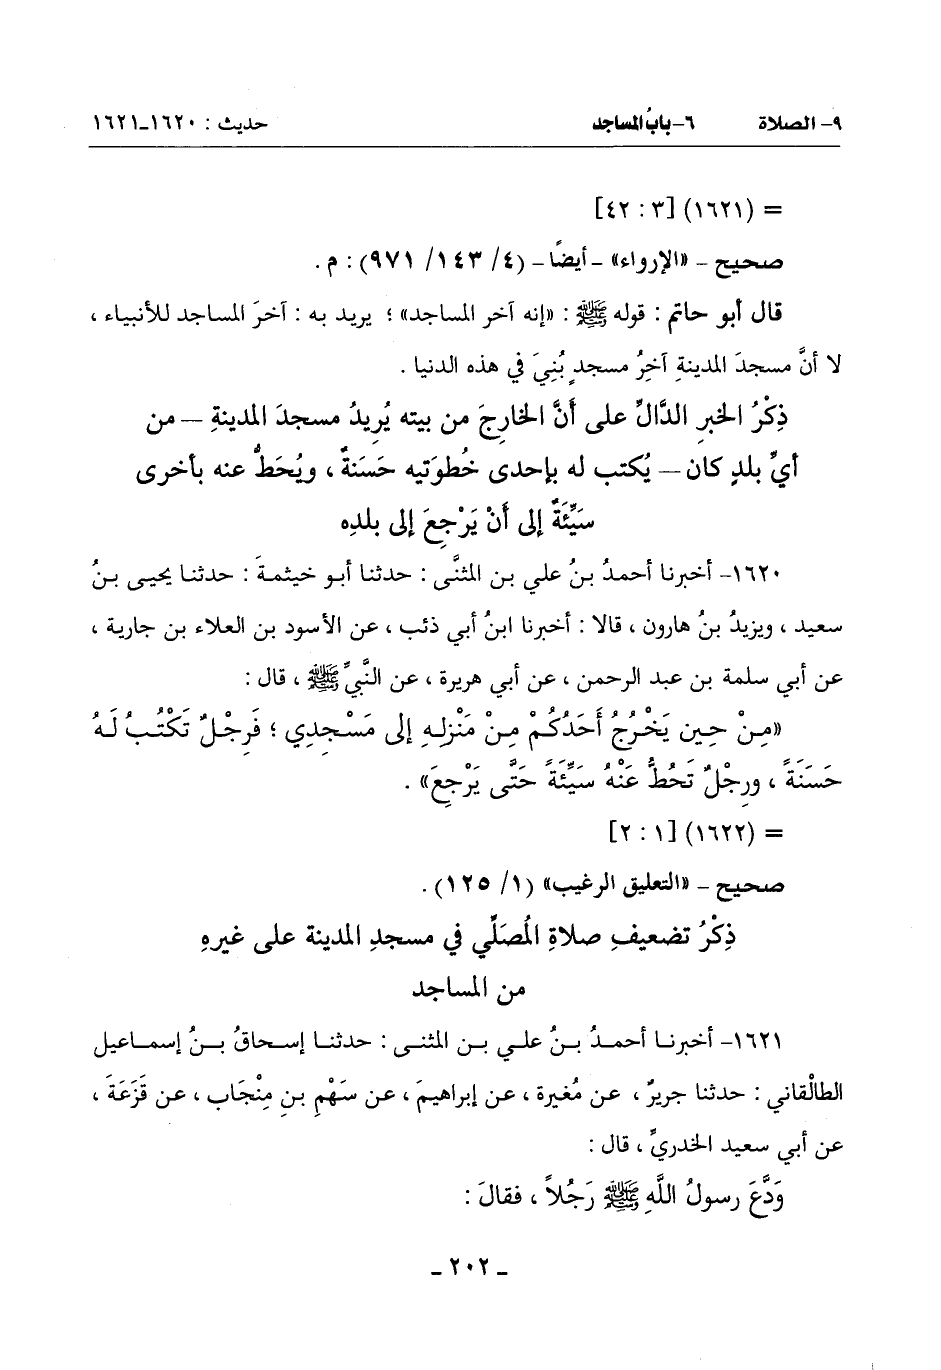 ٩- الصلاة ٦- بابُ المساجد حديث : ١٦٢٠-١٦٢١
= (١٦٢١) [٣ : ٤٢]
صحيح - «الإرواء» - أيضًا - (٤/ ١٤٣/ ٩٧١) : م .
قال أبو حاتم : قوله ﷺ : «إنه آخر المساجد» ؛ يريد به : آخرَ المساجد للأنبياء ،
لا أنَّ مسجدَ المدينةِ آخِرُ مسجدٍ بُنِيَ في هذه الدنيا .
ذِكْرُ الخبرِ الدَّالِّ على أَنَّ الخارِجَ من بيته يُريدُ مسجدَ المدينةِ – من
أيِّ بلدٍ كان – يُكتب له بإحدى خُطوَتيه حَسَنةٌ ، ويُحَطُّ عنه بأخرى
سَيِّئَةٌ إلى أَنْ يَرْجِعَ إلى بلدِه
١٦٢٠- أخبرنا أحمدُ بنُ علي بن المثنَّى : حدثنا أبو خيثمةَ : حدثنا يحيى بنُ
سعيد ، ويزيدُ بنُ هارون ، قالا : أخبرنا ابنُ أبي ذئب ، عن الأسود بن العلاء بن جارية ،
عن أبي سلمة بن عبد الرحمن ، عن أبي هريرة ، عن النَّبيِّ ﷺ ، قال :
«مِنْ حِين يَخْرُجُ أَحَدُكُمْ مِنْ مَنْزِلِهِ إلى مَسْجِدِي ؛ فَرِجْلٌ تَكْتُبُ لَهُ
حَسَنَةً ، ورِجْلٌ تَحُطُّ عَنْهُ سَيِّئَةً حَتَّى يَرْجِعَ» .
= (١٦٢٢) [١ : ٢]
صحيح - «التعليق الرغيب» (١/ ١٢٥) .
ذِكْرُ تضعيفِ صلاةِ المُصَلِّي في مسجدِ المدينة على غيرهِ
من المساجد
١٦٢١- أخبرنا أحمدُ بنُ علي بن المثنى : حدثنا إسحاقُ بنُ إسماعيل
الطالْقاني : حدثنا جريرٌ ، عن مُغيرة ، عن إبراهيمَ ، عن سَهْمِ بنِ مِنْجَاب ، عن قَزَعَةَ ،
عن أبي سعيد الخدريِّ ، قال :
وَدَّعَ رسولُ اللَّهِ ﷺ رَجُلاً ، فقالَ :
- ٢٠٢ -